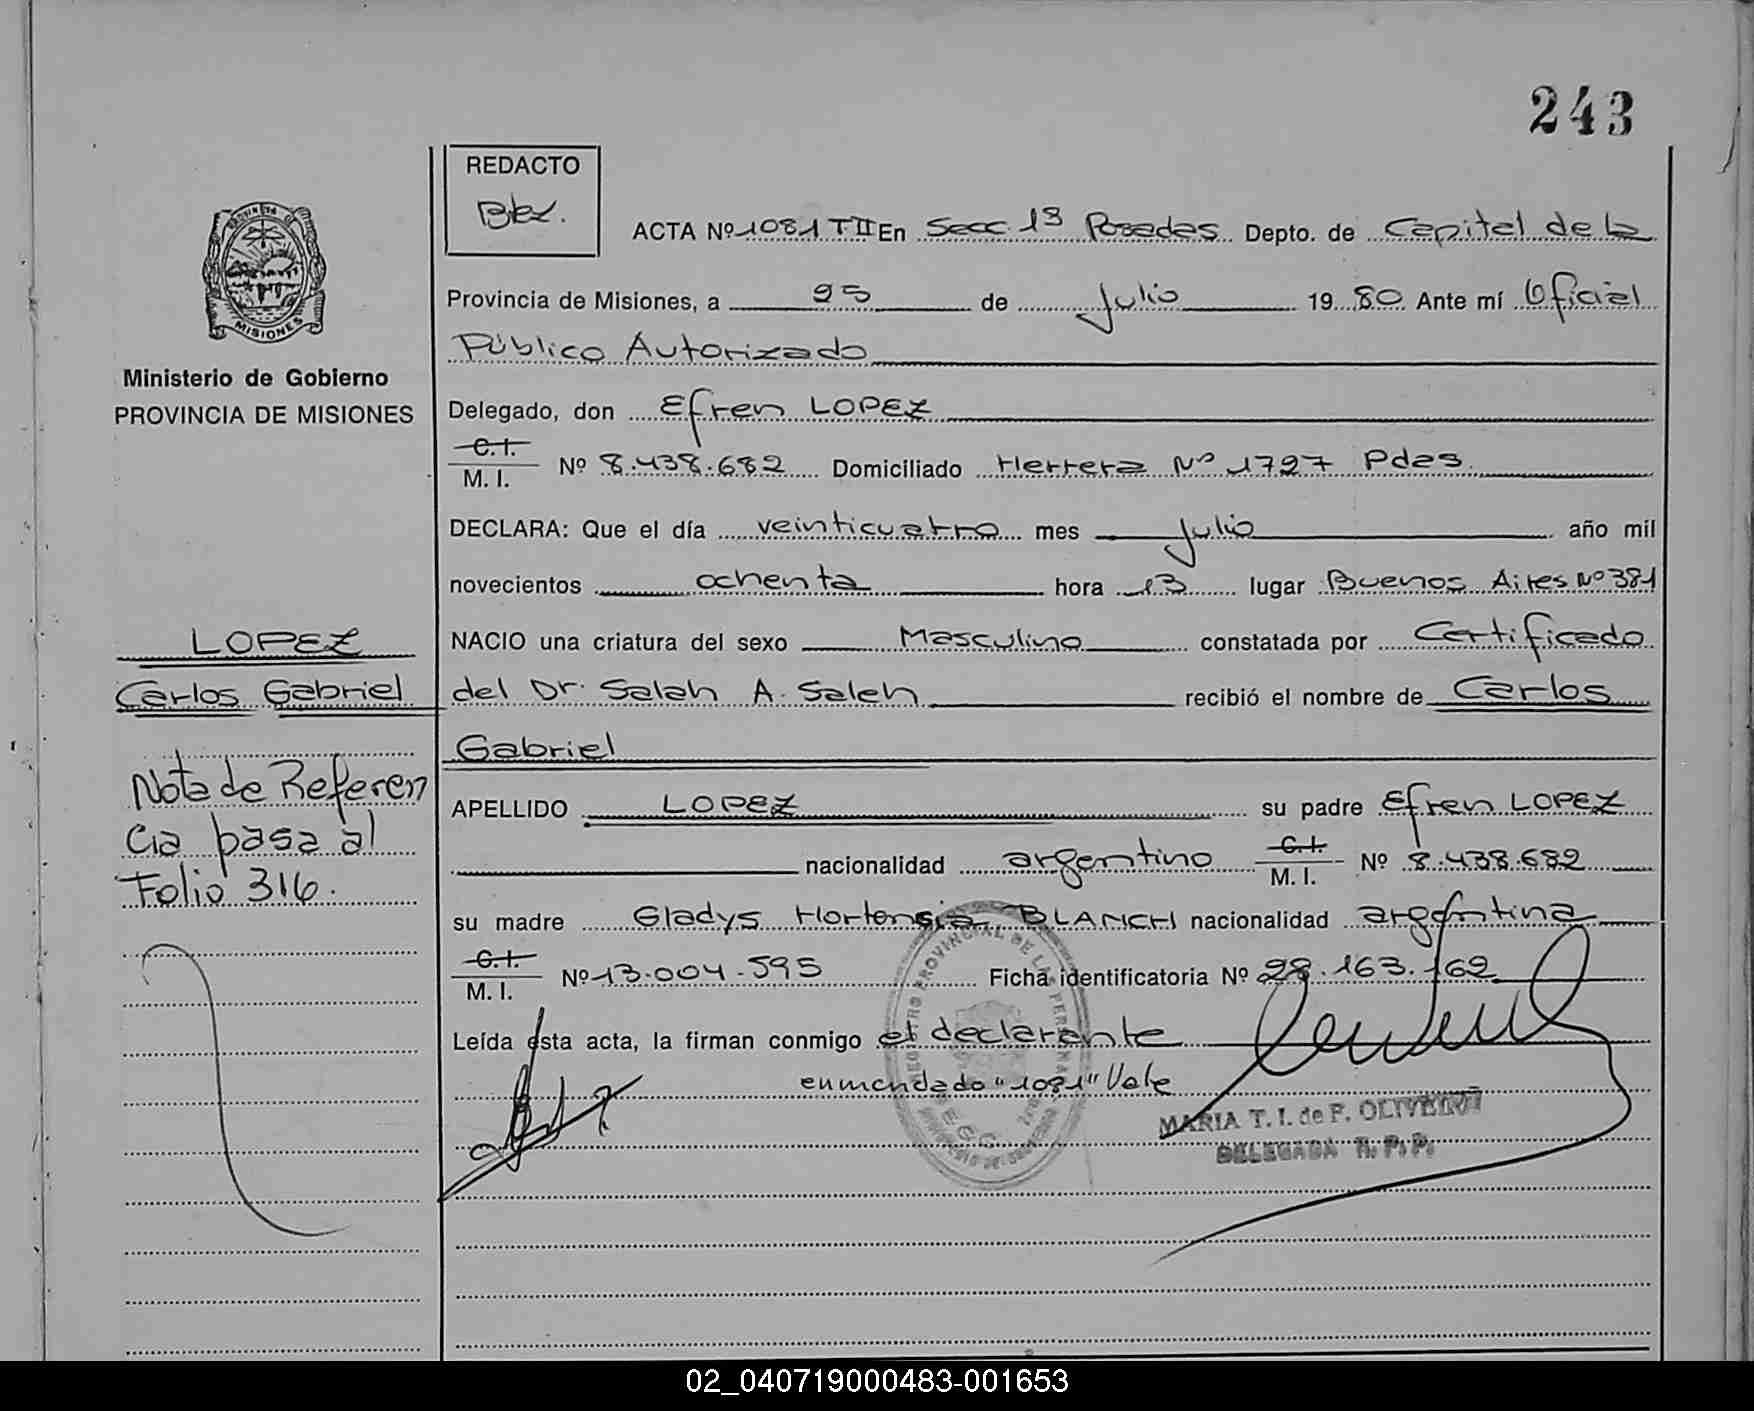 243
REDACTO
ACTA Nº 1081 TII En Secc 1ª Posadas Depto. de Capital de la
Provincia de Misiones, a 25 de Julio 1980 Ante mí Oficial
Público Autorizado
MISIONES
Ministerio de Gobierno
PROVINCIA DE MISIONES
Delegado, don Efren LOPEZ
C. I.
M. I. Nº 8.438.682 Domiciliado Herrera Nº 1727 Pdas
DECLARA: Que el día veinticuatro mes Julio año mil
novecientos ochenta hora 13 lugar Buenos Aires Nº 381
NACIO una criatura del sexo Masculino constatada por Certificado
del Dr. Salah A. Saleh recibió el nombre de Carlos
Gabriel
LOPEZ
Carlos Gabriel
Nota de Referen
cia pasa al
Folio 316.
APELLIDO LOPEZ su padre Efren LOPEZ
nacionalidad argentino C. I. M. I. Nº 8.438.682
su madre Gladys Hortensia BLANCH nacionalidad argentina
C. I.
M. I. Nº 13.004.595 Ficha identificatoria Nº 28.163.162
Leída esta acta, la firman conmigo el declarante
enmendado "1081" Vale
REGISTRO PROVINCIAL DE LAS PERSONAS
MARIA T. I. de P. OLIVEIRA
DELEGADA R. P. P.
02_040719000483-001653